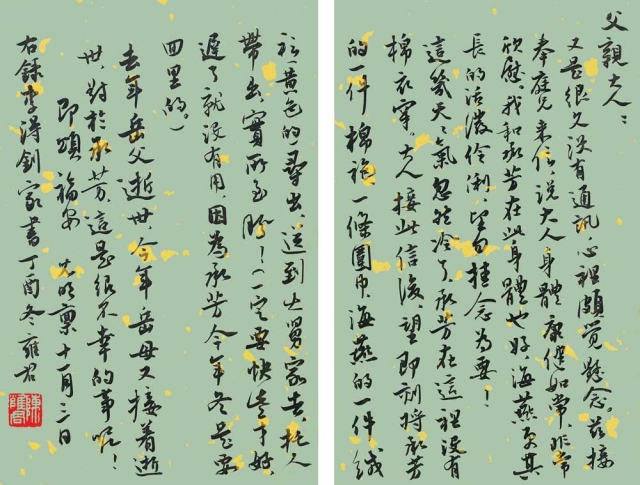 父親大人：
又是很久没有通訊心裡頗覺懸念。兹接
奉庭兄来信，说大人身體康健如常非常
欣慰。我和承芳在此身體也好，海燕更其
長的活潑伶俐，望勿挂念為要！
這幾天天氣忽然冷了承芳在這裡没有
棉衣穿。大人接此信後望即刻将承芳
的一件棉袍、一條圍巾海燕的一件絨
衫（黄色的）尋出，送到大舅家去托人
帶出，實所至盼！（一定要快送才好，
遲了就没有用，因為承芳今年冬是要
四里的。）
去年岳父逝世，今年岳母又接着逝
世，對於承芳，這是很不幸的事呢！
即頌福安 稟十一月三日
右録李得釗家書丁酉冬雍君